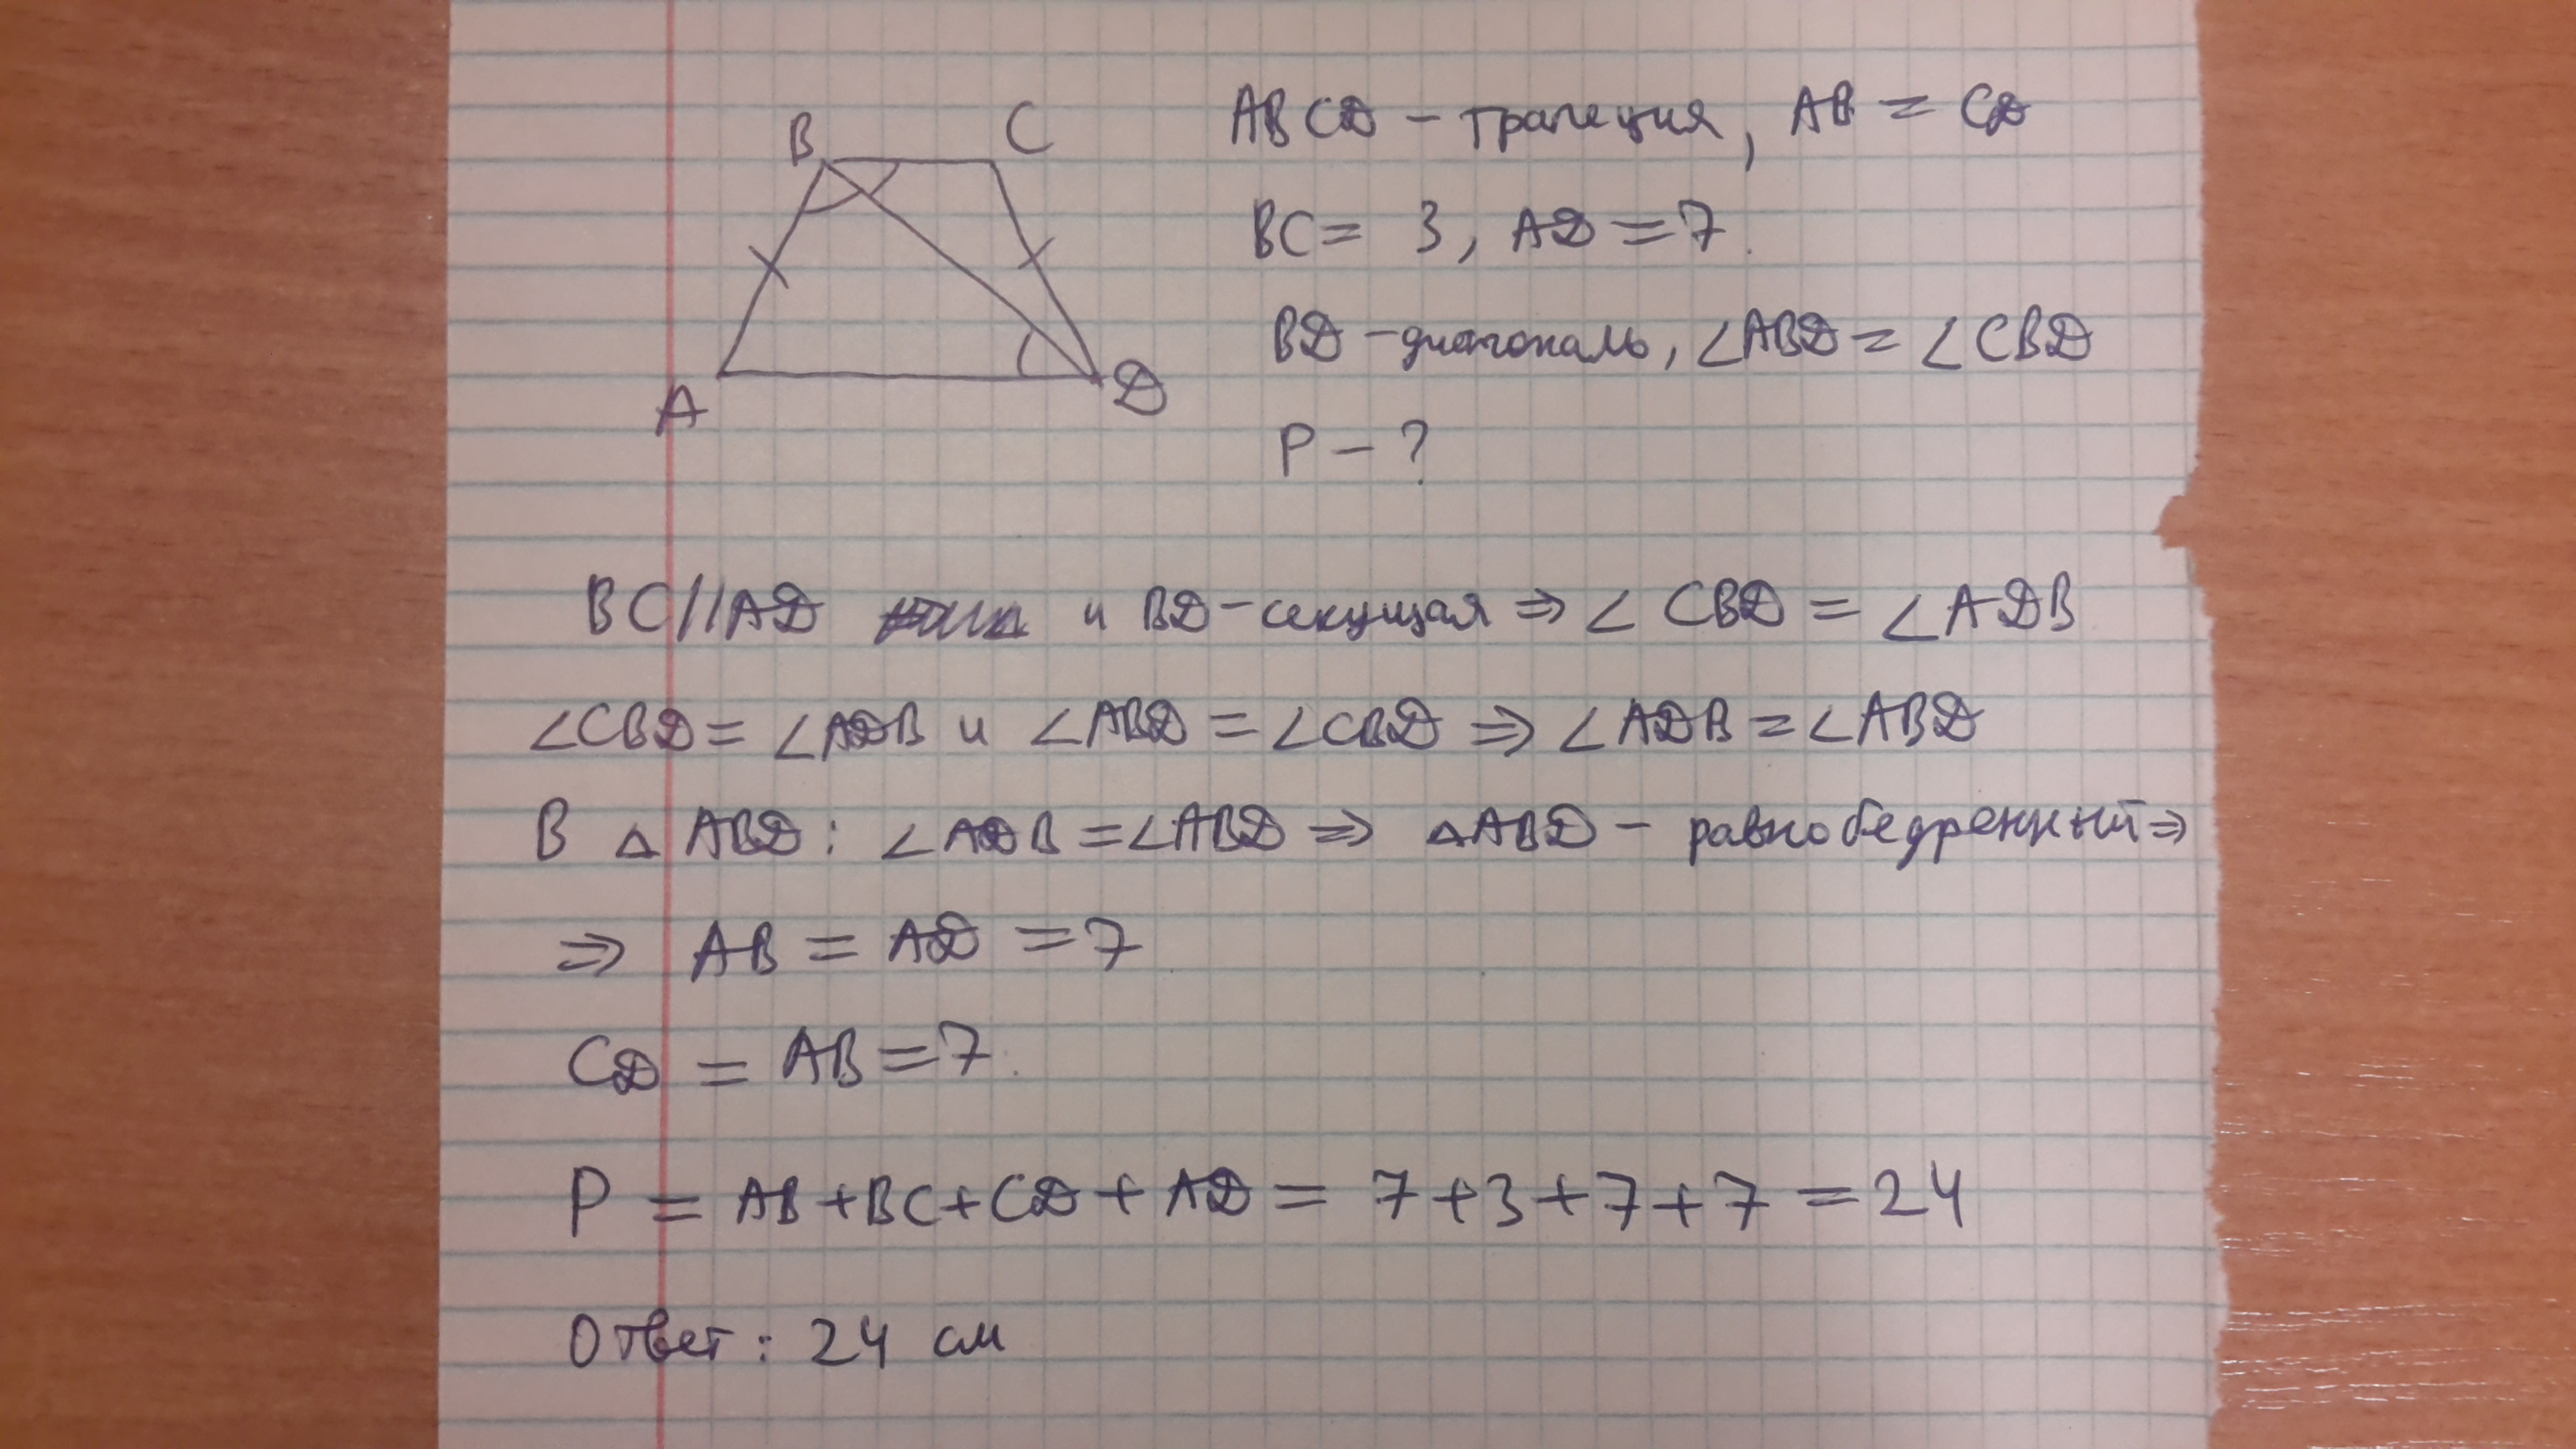 B C
A D
ABCD - трапеция, AB = CD
BC = 3, AD = 7.
BD - диагональ, ∠ABD = ∠CBD
P - ?
BC//AD и BD - секущая ⇒ ∠CBD = ∠ADB
∠CBD = ∠ADB и ∠ABD = ∠CBD ⇒ ∠ADB = ∠ABD
В △ ABD: ∠ADB = ∠ABD ⇒ △ABD - равнобедренный ⇒
⇒ AB = AD = 7
CD = AB = 7.
P = AB + BC + CD + AD = 7 + 3 + 7 + 7 = 24
Ответ: 24 см